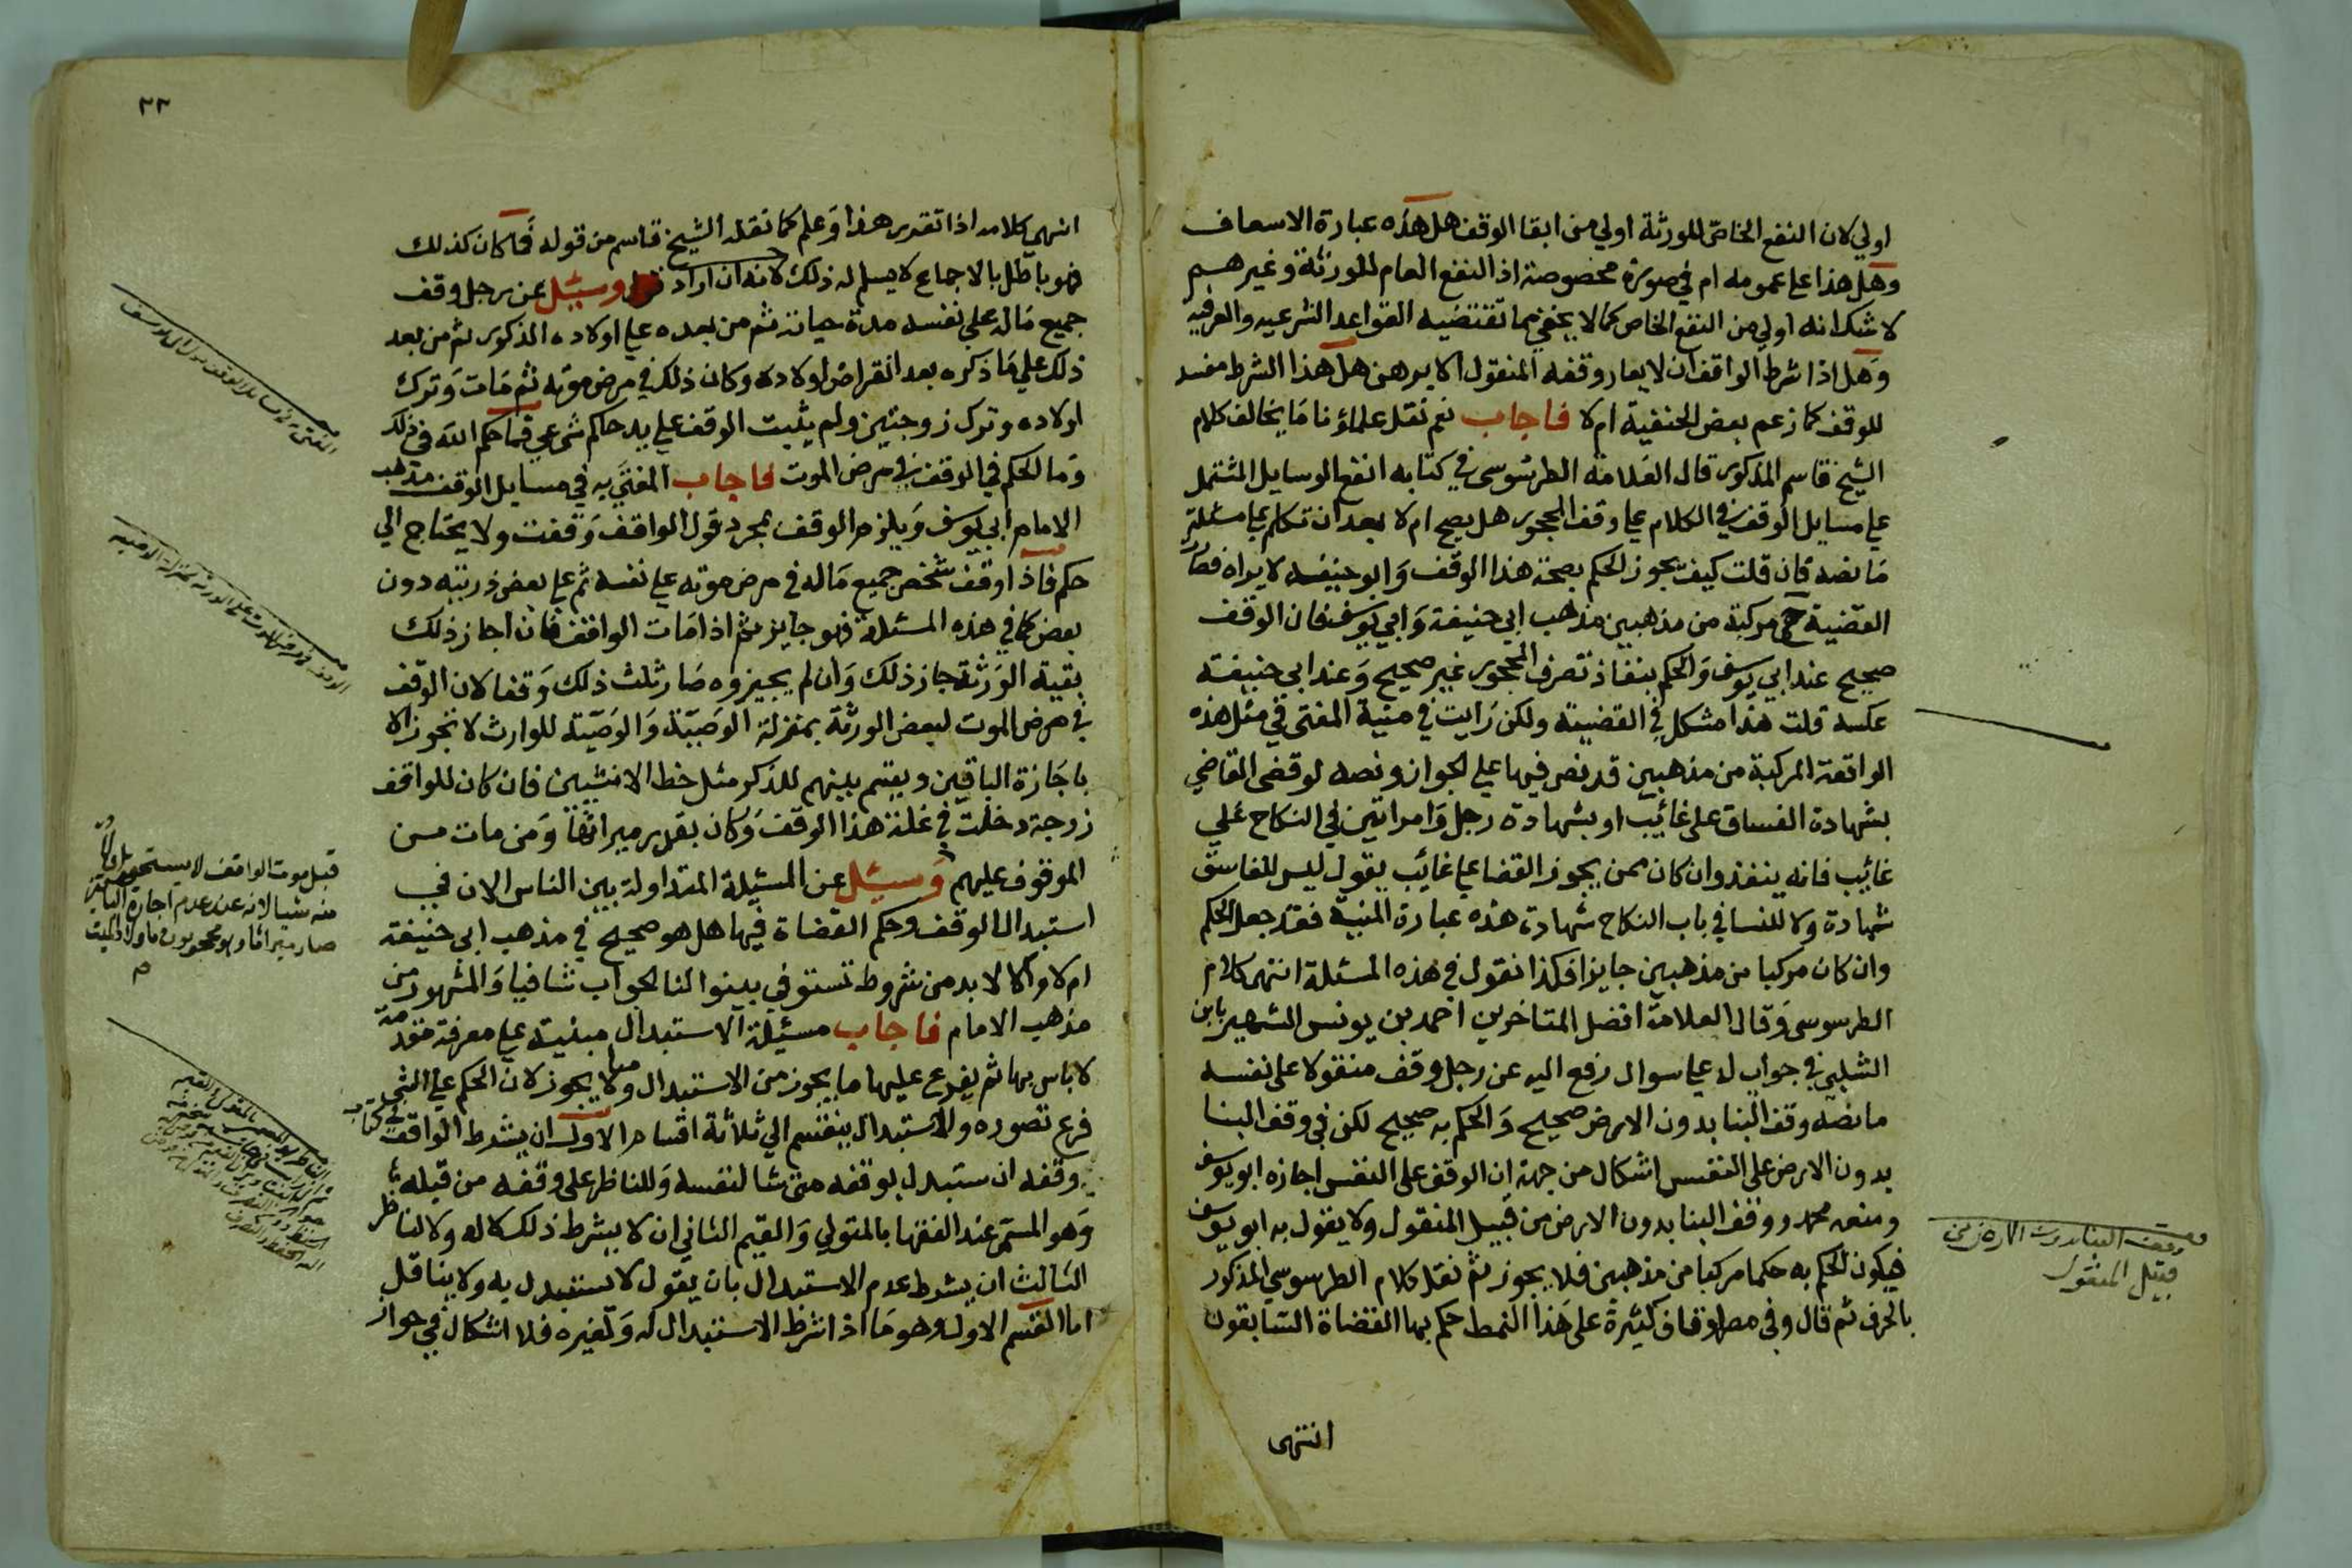 اولي لان النفع الخاص للورثة اولي من ابقا الوقف هل هذه عبارة الاسعاف
وهل هذا علي عمومه ام في صورة مخصوصة اذ النفع العام للورثة وغيرهم
لا شك انه اولي من النفع الخاص كما لا يخفي مما تقتضيه القواعد الشرعيه والعرفيه
وهل اذا شرط الواقف ان لا يعار وقفه المنقول الا برهن هل هذا الشرط مفسد
للوقف كما زعم بعض الحنفية ام لا فاجاب نعم نقل علماؤنا ما يخالف كلام
الشيخ قاسم المذكور قال العلامة الطرسوسي في كتابه انفع الوسايل المشتمل
علي مسايل الوقف في الكلام علي وقف المحجور هل يصح ام لا بعد ان تكلم علي مسئلة
ما نصه فان قلت كيف يجوز الحكم بصحة هذا الوقف وابو حنيفه لا يراه فصار
القضية ح مركبة من مذهبين مذهب ابي حنيفة وابي يوسف فان الوقف
صحيح عند ابي يوسف والحكم بنفاذ تصرف المحجور غير صحيح وعند ابي حنيفة
عكسه قلت هذا مشكل في القضية ولكن رايت في منية المفتي في مثل هذه
الواقعة المركبة من مذهبين قد نص فيها علي الجواز ونصه لو قضى القاضي
بشهادة الفساق على غائب او بشهادة رجل وامراتين في النكاح علي
غائب فانه ينفذ وان كان ممن يجوز القضا علي غائب يقول ليس للفاسق
شهادة ولا للنسا في باب النكاح شهادة هذه عبارة المنية فقد جعل الحكم
وان كان مركبا من مذهبين جايزا فكذا نقول في هذه المسئلة انتهى كلام
الطرسوسي وقال العلامة افضل المتاخرين احمد بن يونس الشهير بابن
الشلبي في جواب له علي سوال رفع اليه عن رجل وقف منقولا على نفسه
ما نصه وقف البنا بدون الارض صحيح والحكم به صحيح لكن في وقف البنا
بدون الارض على النفس اشكال من جهة ان الوقف على النفس اجازه ابو يوسف
ومنعه محمد ووقف البنا بدون الارض من قبيل المنقول ولا يقول به ابو يوسف
فيكون الحكم به حكما مركبا من مذهبين فلا يجوز ثم نقل كلام الطرسوسي المذكور
بالحرف ثم قال وفي مصر اوقاف كثيرة على هذا النمط حكم بها القضاة السابقون
انتهى
وقف البنا بدون الارض من
قبيل المنقول
٢٢
انتهى كلامه اذا تقرر هذا وعلم كما نقله الشيخ قاسم من قوله فما كان كذلك
فهو باطل بالاجماع لا يسلم له ذلك لانه ان اراد وسئل عن رجل وقف
جميع ماله علي نفسه مدة حياته ثم من بعده علي اولاده المذكور ثم من بعد
ذلك علي ما ذكره بعد انقراض اولاده وكان ذلك في مرض موته ثم مات وترك
اولاده وترك زوجتين ولم يثبت الوقف علي يد حاكم شرعي فما حكم الله في ذلك
وما الحكم في الوقف في مرض الموت فاجاب المفتي به في مسايل الوقف مذهب
الامام ابي يوسف ويلزم الوقف بمجرد قول الواقف وقفت ولا يحتاج الي
حكم فاذا اوقف شخص جميع ماله في مرض موته علي نفسه ثم علي بعض ذريته دون
بعض كما في هذه المسئلة فهو جايز ثم اذا مات الواقف فان اجاز ذلك
بقية الورثة جاز ذلك وان لم يجيزوه صار ثلث ذلك وقفا لان الوقف
في مرض الموت لبعض الورثة بمنزلة الوصية والوصية للوارث لا تجوز الا
باجازة الباقين ويقسم بينهم للذكر مثل حظ الانثيين فان كان للواقف
زوجة دخلت في غلة هذا الوقف وكان بقدر ميراثها ومن مات من
الموقوف عليهم وسئل عن المسئلة المتداولة بين الناس الان في
استبدال الوقف وحكم القضاة فيها هل هو صحيح في مذهب ابي حنيفة
ام لا واكالا لابد من شروط تستوفي بينوا لنا الجواب شافيا والمشهور من
مذهب الامام فاجاب مسئلة الاستبدال مبنية علي معرفة مقدمة
لا باس بها ثم يفرع عليها ما يجوز من الاستبدال وما لا يجوز لان الحكم علي الشي
فرع تصوره والاستبدال ينقسم الي ثلاثة اقسام الاول ان يشرط الواقف في كتاب
وقفه ان ستبدل بوقفه متى شا لنفسه وللناظر على وقفه من قبله
وهو المسمى عند الفقها بالمتولي والقيم الثاني ان لا يشرط ذلك لا له ولا لناظر
الثالث ان يشرط عدم الاستبدال بان يقول لا يستبدل به ولا يناقل
اما القسم الاول وهو ما اذا شرط الاستبدال له ولغيره فلا اشكال في جواز
الوقف في مرض الموت علي الورثة بمنزلة الوصية
قبل موت الواقف لا يستحق
منه شيا لانه عند عدم اجازة
صار ميراثا وهو محجوبون